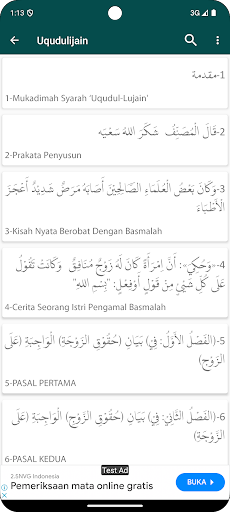 1:13 3G
Uqudulijain
1-مقدمة
1-Mukadimah Syarah 'Uqudul-Lujain'
2-قَالَ الْمُصَنِّفُ شَكَرَ اللهُ سَعْيَه
2-Prakata Penyusun
3-وَكَانَ بَعْضُ الْعُلَمَاءِ الصَّالِحِيْنَ أَصَابَهُ مَرَضٌ شَدِيْدٌ أَعْجَزَ
الْأَطِبَّاءَ
3-Kisah Nyata Berobat Dengan Basmalah
4-«وَحُكِيَ»: أَنَّ اِمْرَأَةً كَانَ لَهُ زَوْجٌ مُنَافِقٌ وَكَانَتْ تَقُوْلُ
عَلَى كُلِّ شَيْئٍ مِنْ قَوْلٍ أَوْفِعْلٍ: "بِسْمِ اللهِ"
4-Cerita Seorang Istri Pengamal Basmalah
5-(الْفَصْلُ الأَوَّلُ: فِيْ) بَيَانِ (حُقُوْقِ الزَّوْجَةِ) الْوَاجِبَةِ (عَلَى
الزَّوْجِ)
5-PASAL PERTAMA
6-(الْفَصْلُ الثَّانِيْ: فِيْ) بَيَانِ (حُقُوْقِ الزَّوْجِ) الْوَاجِبَةِ (عَلَى
الزَّوْجَةِ)
6-PASAL KEDUA
Test Ad
2.5NVG Indonesia
Pemeriksaan mata online gratis
BUKA